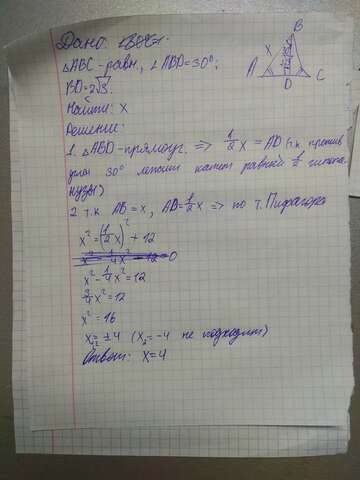 Дано:
△ABC-равн., ∠ABD=30°;
BD=2√3.
Найти: x
Решение:
1. △ABD-прямоуг. => 1/2 x = AD (т.к. против
угла 30° лежит катет равный 1/2 гипоте
нузы)
2. т.к. AB=x, AD=1/2 x => по т. Пифагора
x²=(1/2 x)²+12
x²-1/4 x²-12=0
x²-1/4 x²=12
3/4 x²=12
x²=16
x₁,₂=±4 (x₂=-4 не подходит)
Ответ: x=4
B
x
A
D
C